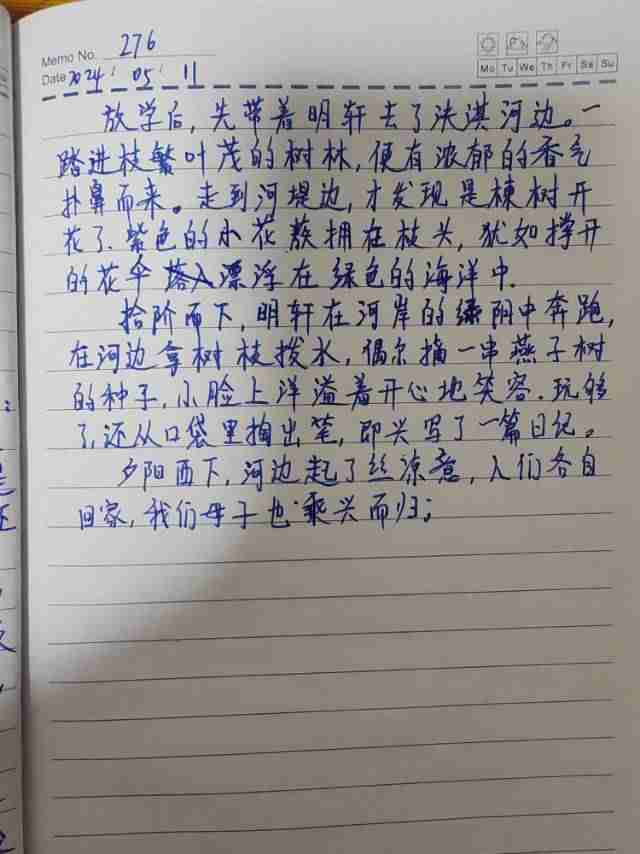 Memo No. 276
Mo Tu We Th Fr Sa Su
Date 2024 . 05 . 11
放学后，先带着明轩去了洪淇河边。一
踏进枝繁叶茂的树林，便有浓郁的香气
扑鼻而来。走到河堤边，才发现是楝树开
花了.紫色的小花蔟拥在枝头，犹如撑开
的花伞漂浮在绿色的海洋中.
拾阶而下，明轩在河岸的绿阴中奔跑，
在河边拿树枝拨水，偶尔摘一串燕子树
的种子，小脸上洋溢着开心地笑容.玩够
了，还从口袋里掏出笔，即兴写了一篇日记。
夕阳西下，河边起了丝凉意，人们各自
回家，我们母子也乘兴而归；